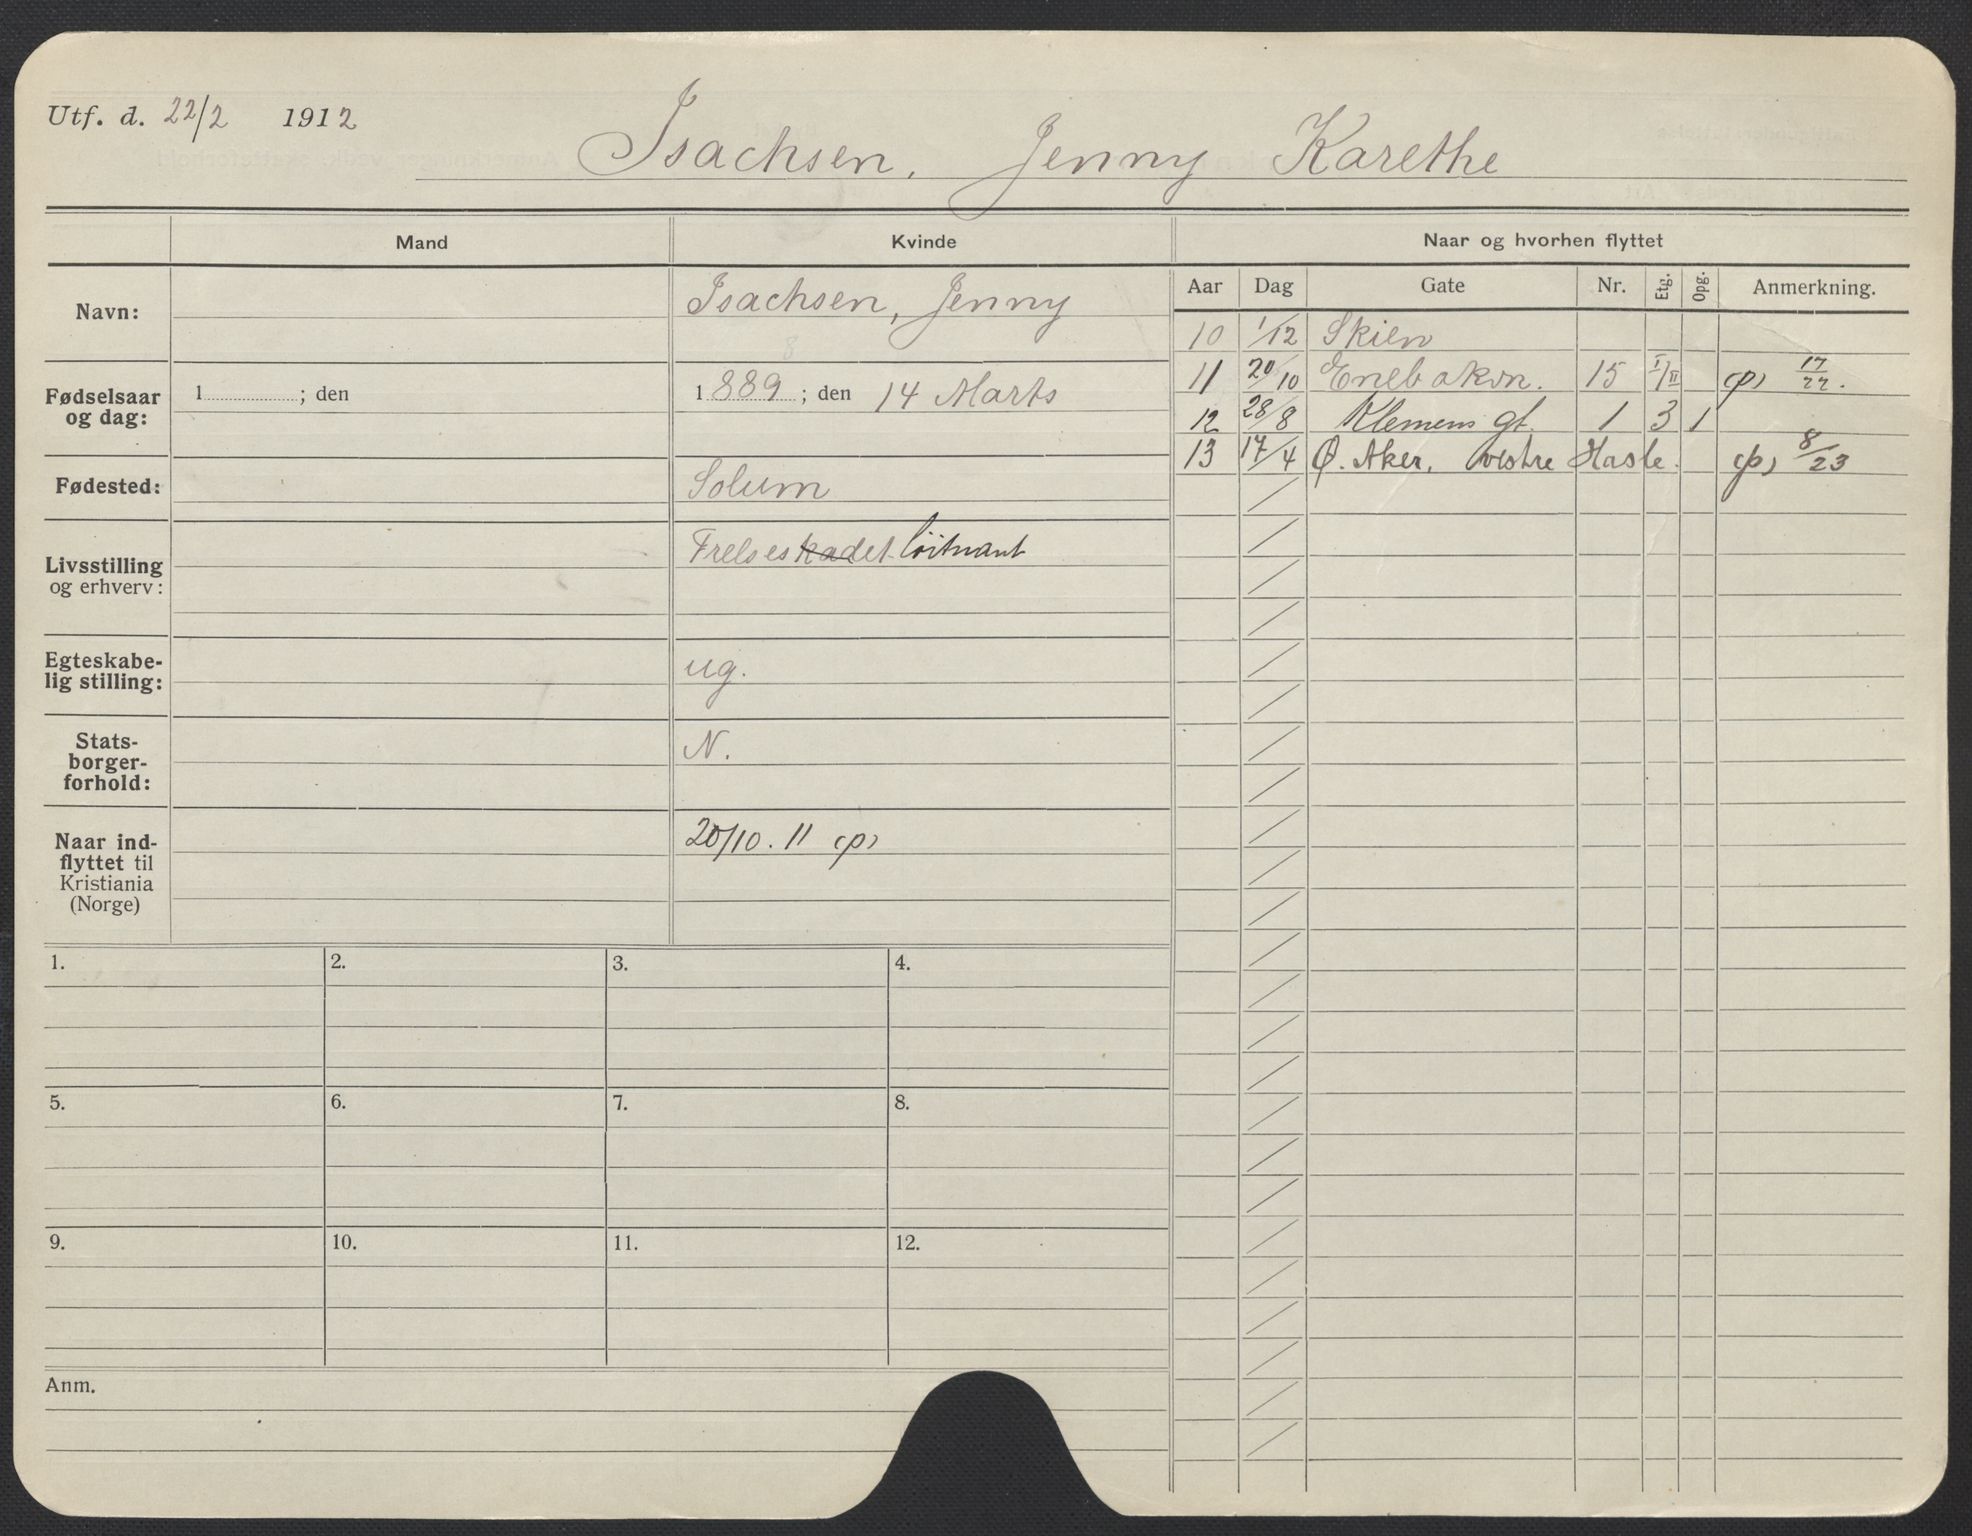 Utf. d. 22/2 1912
Isachsen, Jenny Karethe
Mand
Kvinde
Naar og hvorhen flyttet
Navn:
Isachsen, Jenny
Fødselsaar
og dag:
1 ; den
1889 ; den 14 Marts
Fødested:
Solum
Livsstilling
og erhverv:
Frelseskadet löitnant
Egteskabe-
lig stilling:
ug.
Stats-
borger-
forhold:
N.
Naar ind-
flyttet til
Kristiania
(Norge)
20/10. 11 (p)
Aar Dag Gate Nr. Etg. Opg. Anmerkning.
10 1/12 Skien
11 20/10 Enebakvn. 15 I/II (p) 17/22.
12 28/8 Klemens gt. 1 3 1
13 17/4 Ø. Aker, vestre Hasle. (p) 8/23
1. 2. 3. 4.
5. 6. 7. 8.
9. 10. 11. 12.
Anm.